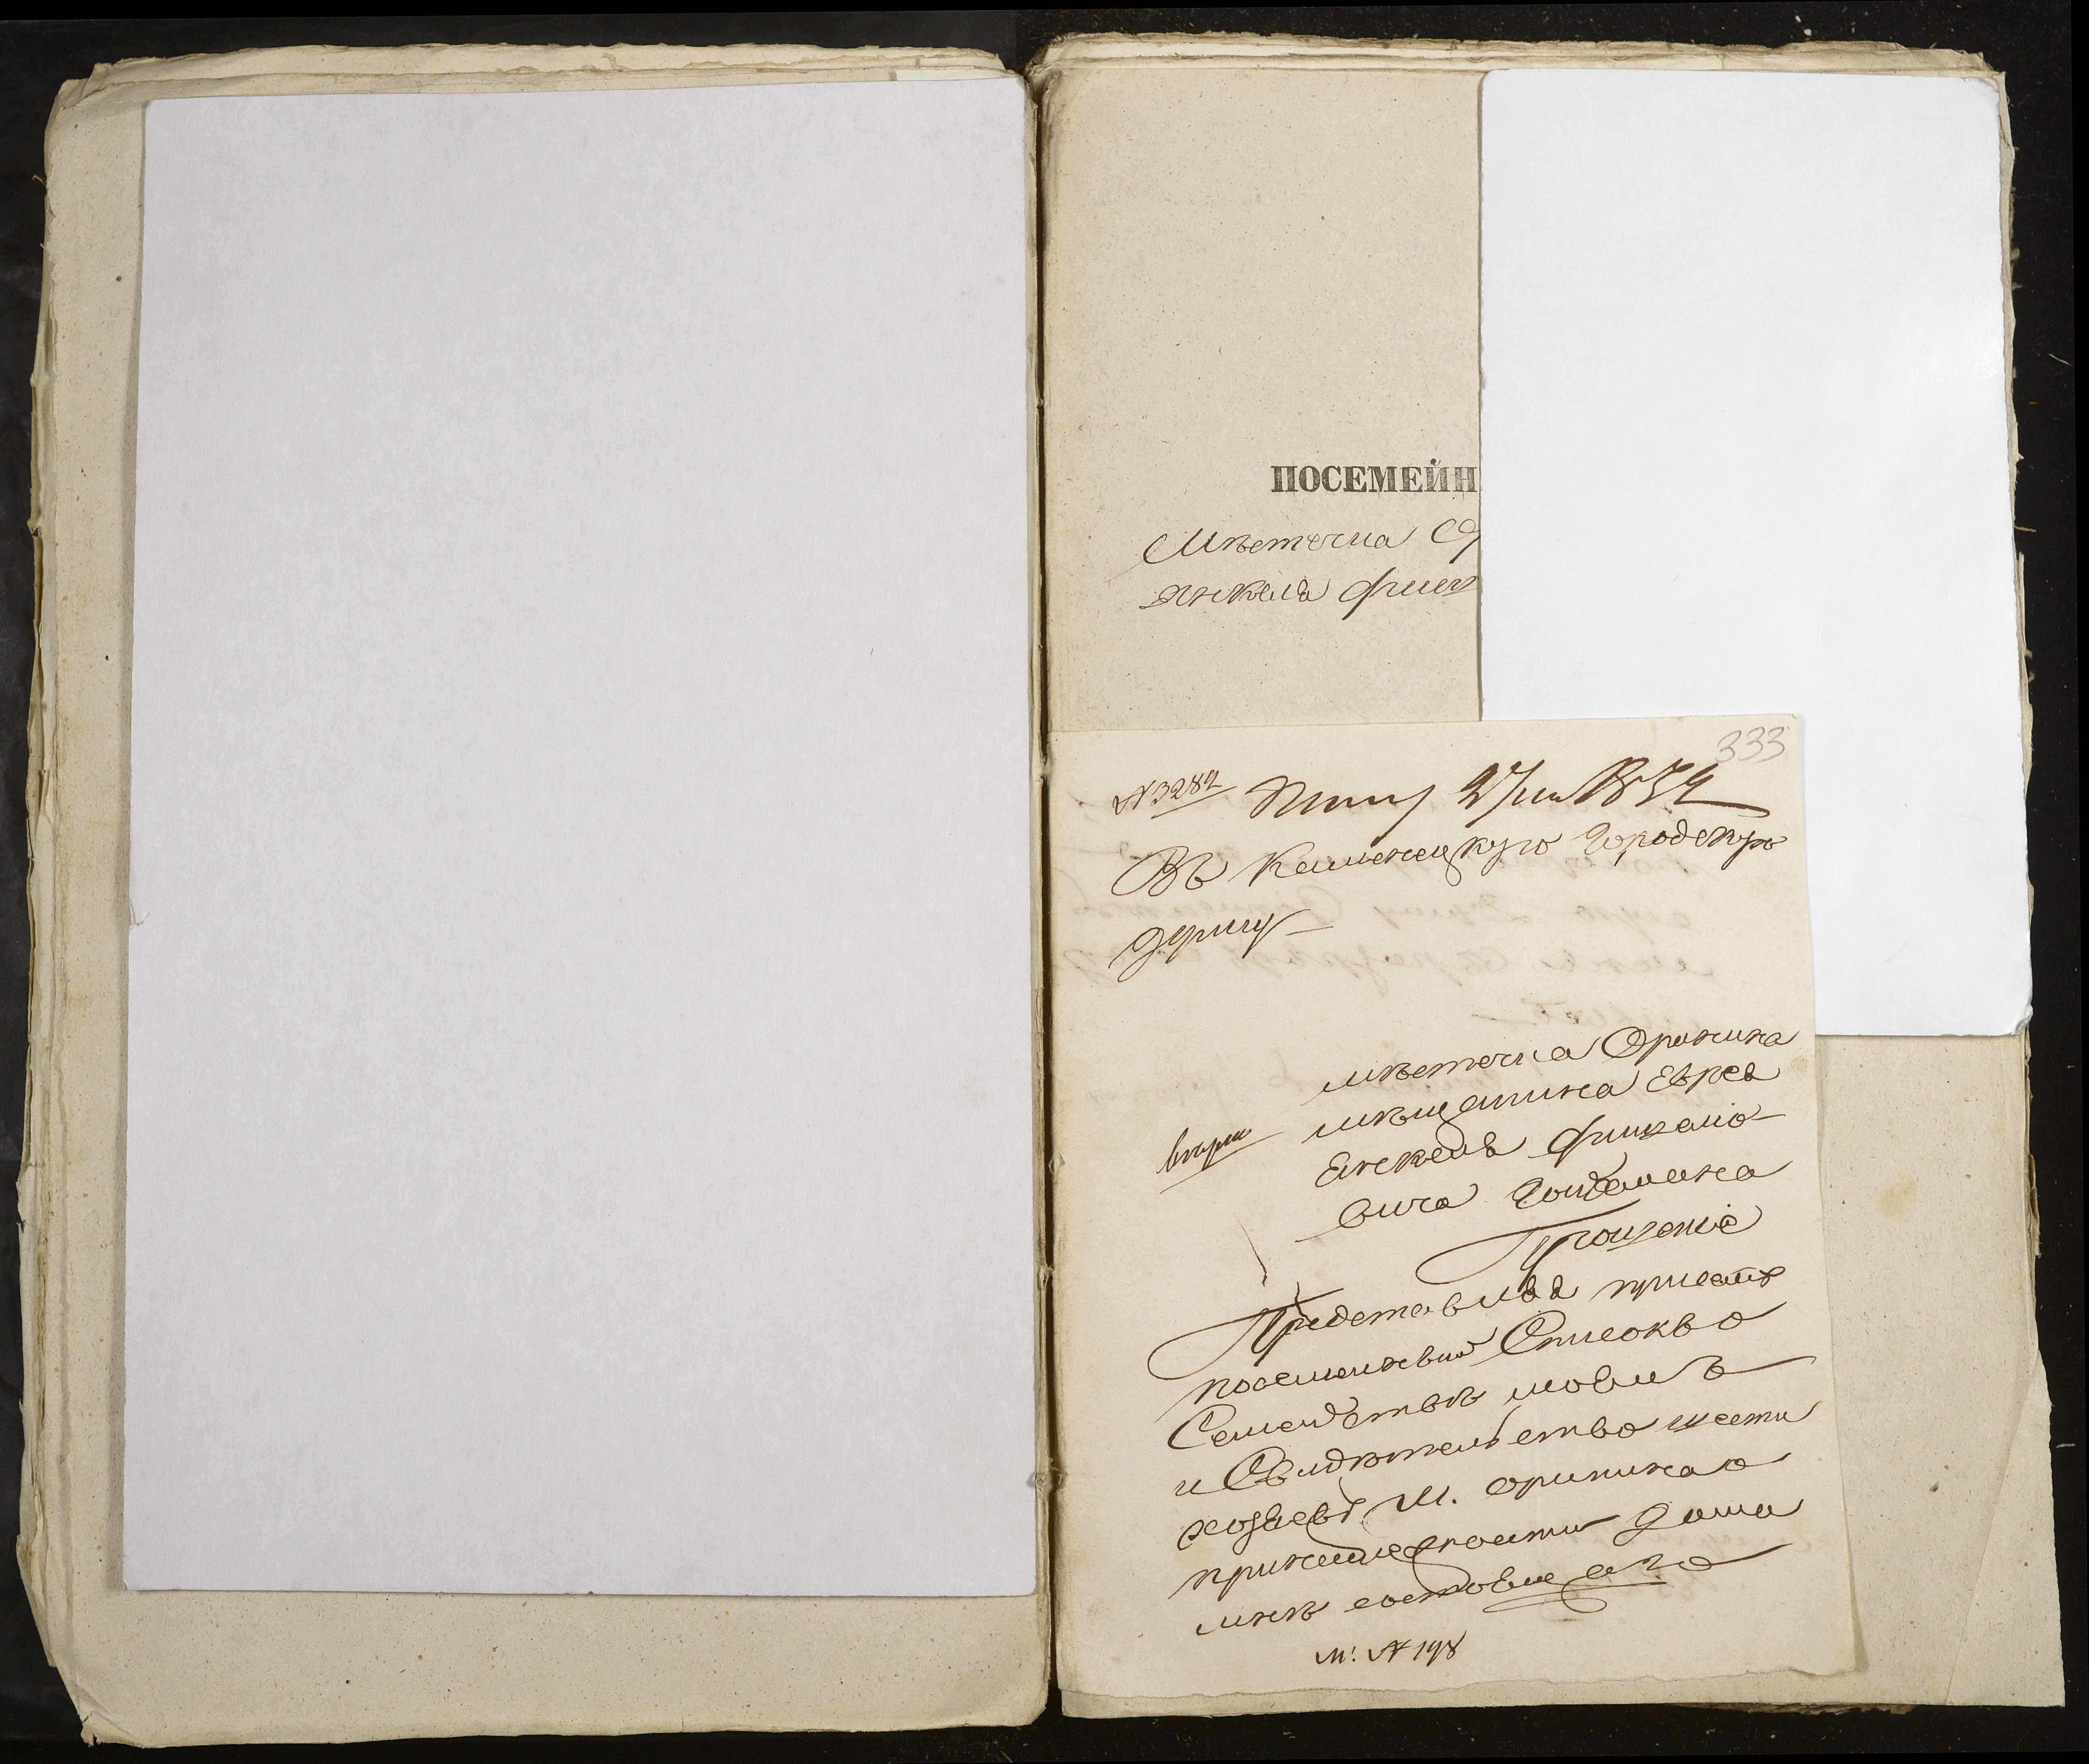 ПОСЕМЕЙН
Мѣстечка
Янкеля
333
№3282
Въ Каменецкую Городскую
Думу
мѣстечка Орынина
мѣщанина Еврея
Янкеля Фишело
вича
Прошеніе
Представляя при семъ
посемейный Списокъ о
Семействѣ моемъ
и Свидѣтельство шести
хозяевъ М. Орынина о
принадлежности дома
мнѣ
М. № 198